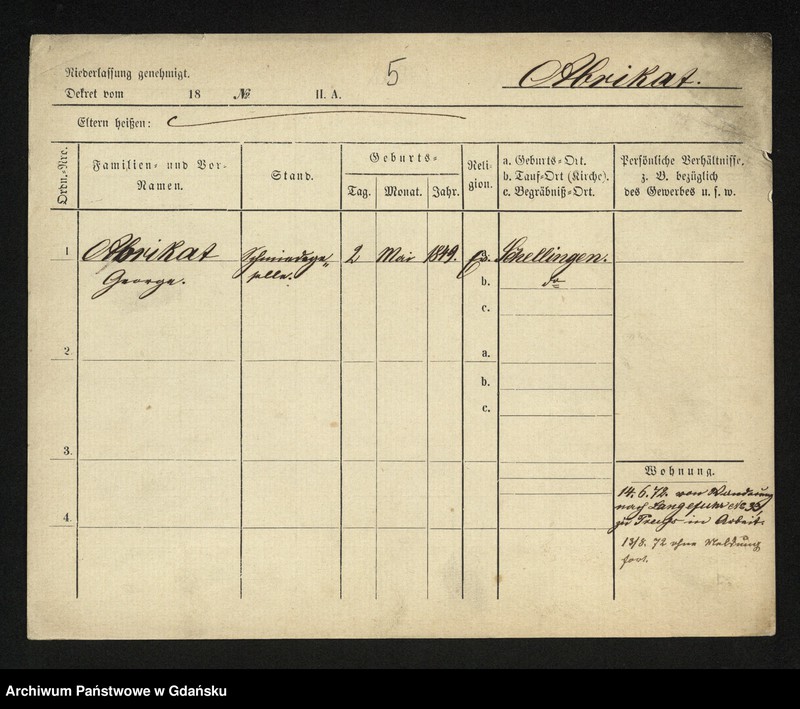 Niederlassung genehmigt.
5
Abrikat.
Dekret vom 18 № II. A.
Eltern heißen:
Ordn.-Nre.
Familien- und Vor-
Namen.
Stand.
Geburts-
Tag. Monat. Jahr.
Reli-
gion.
a. Geburts-Ort.
b. Tauf-Ort (Kirche).
c. Begräbniß-Ort.
Persönliche Verhältnisse,
z. B. bezüglich
des Gewerbes u. s. w.
1 Abrikat Schmiedege- 2 Mai 1849. Schellingen.
George. selle. b. do
c.
2. a.
b.
c.
3.
4.
Wohnung.
14.6.72. von Wanderung
nach Langefuhr No 39,
zu in Arbeit.
13/8. 72 ohne Meldung
fort.
Archiwum Państwowe w Gdańsku